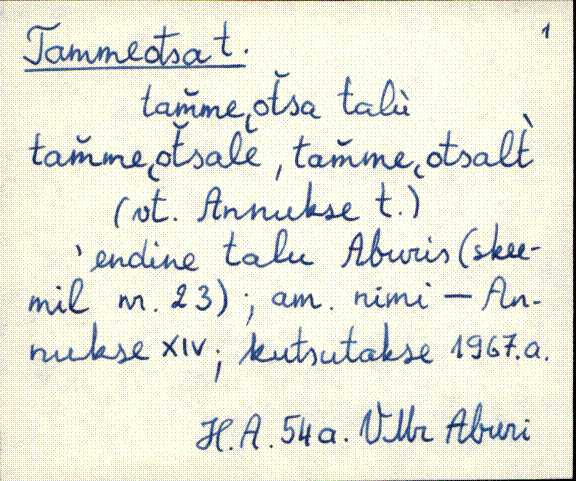 1
Tammeotsa t.
tam̆me˛ot̆sa talù
tam̆me˛ot̆salȅ, tam̆me˛otsalt̀
(vt. Annukse t.)
'endine talu Aburis (skee-
mil nr. 23); am. nimi – An-
nukse XIV; kutsutakse 1967.a.
H.A. 54a. VMr Aburi